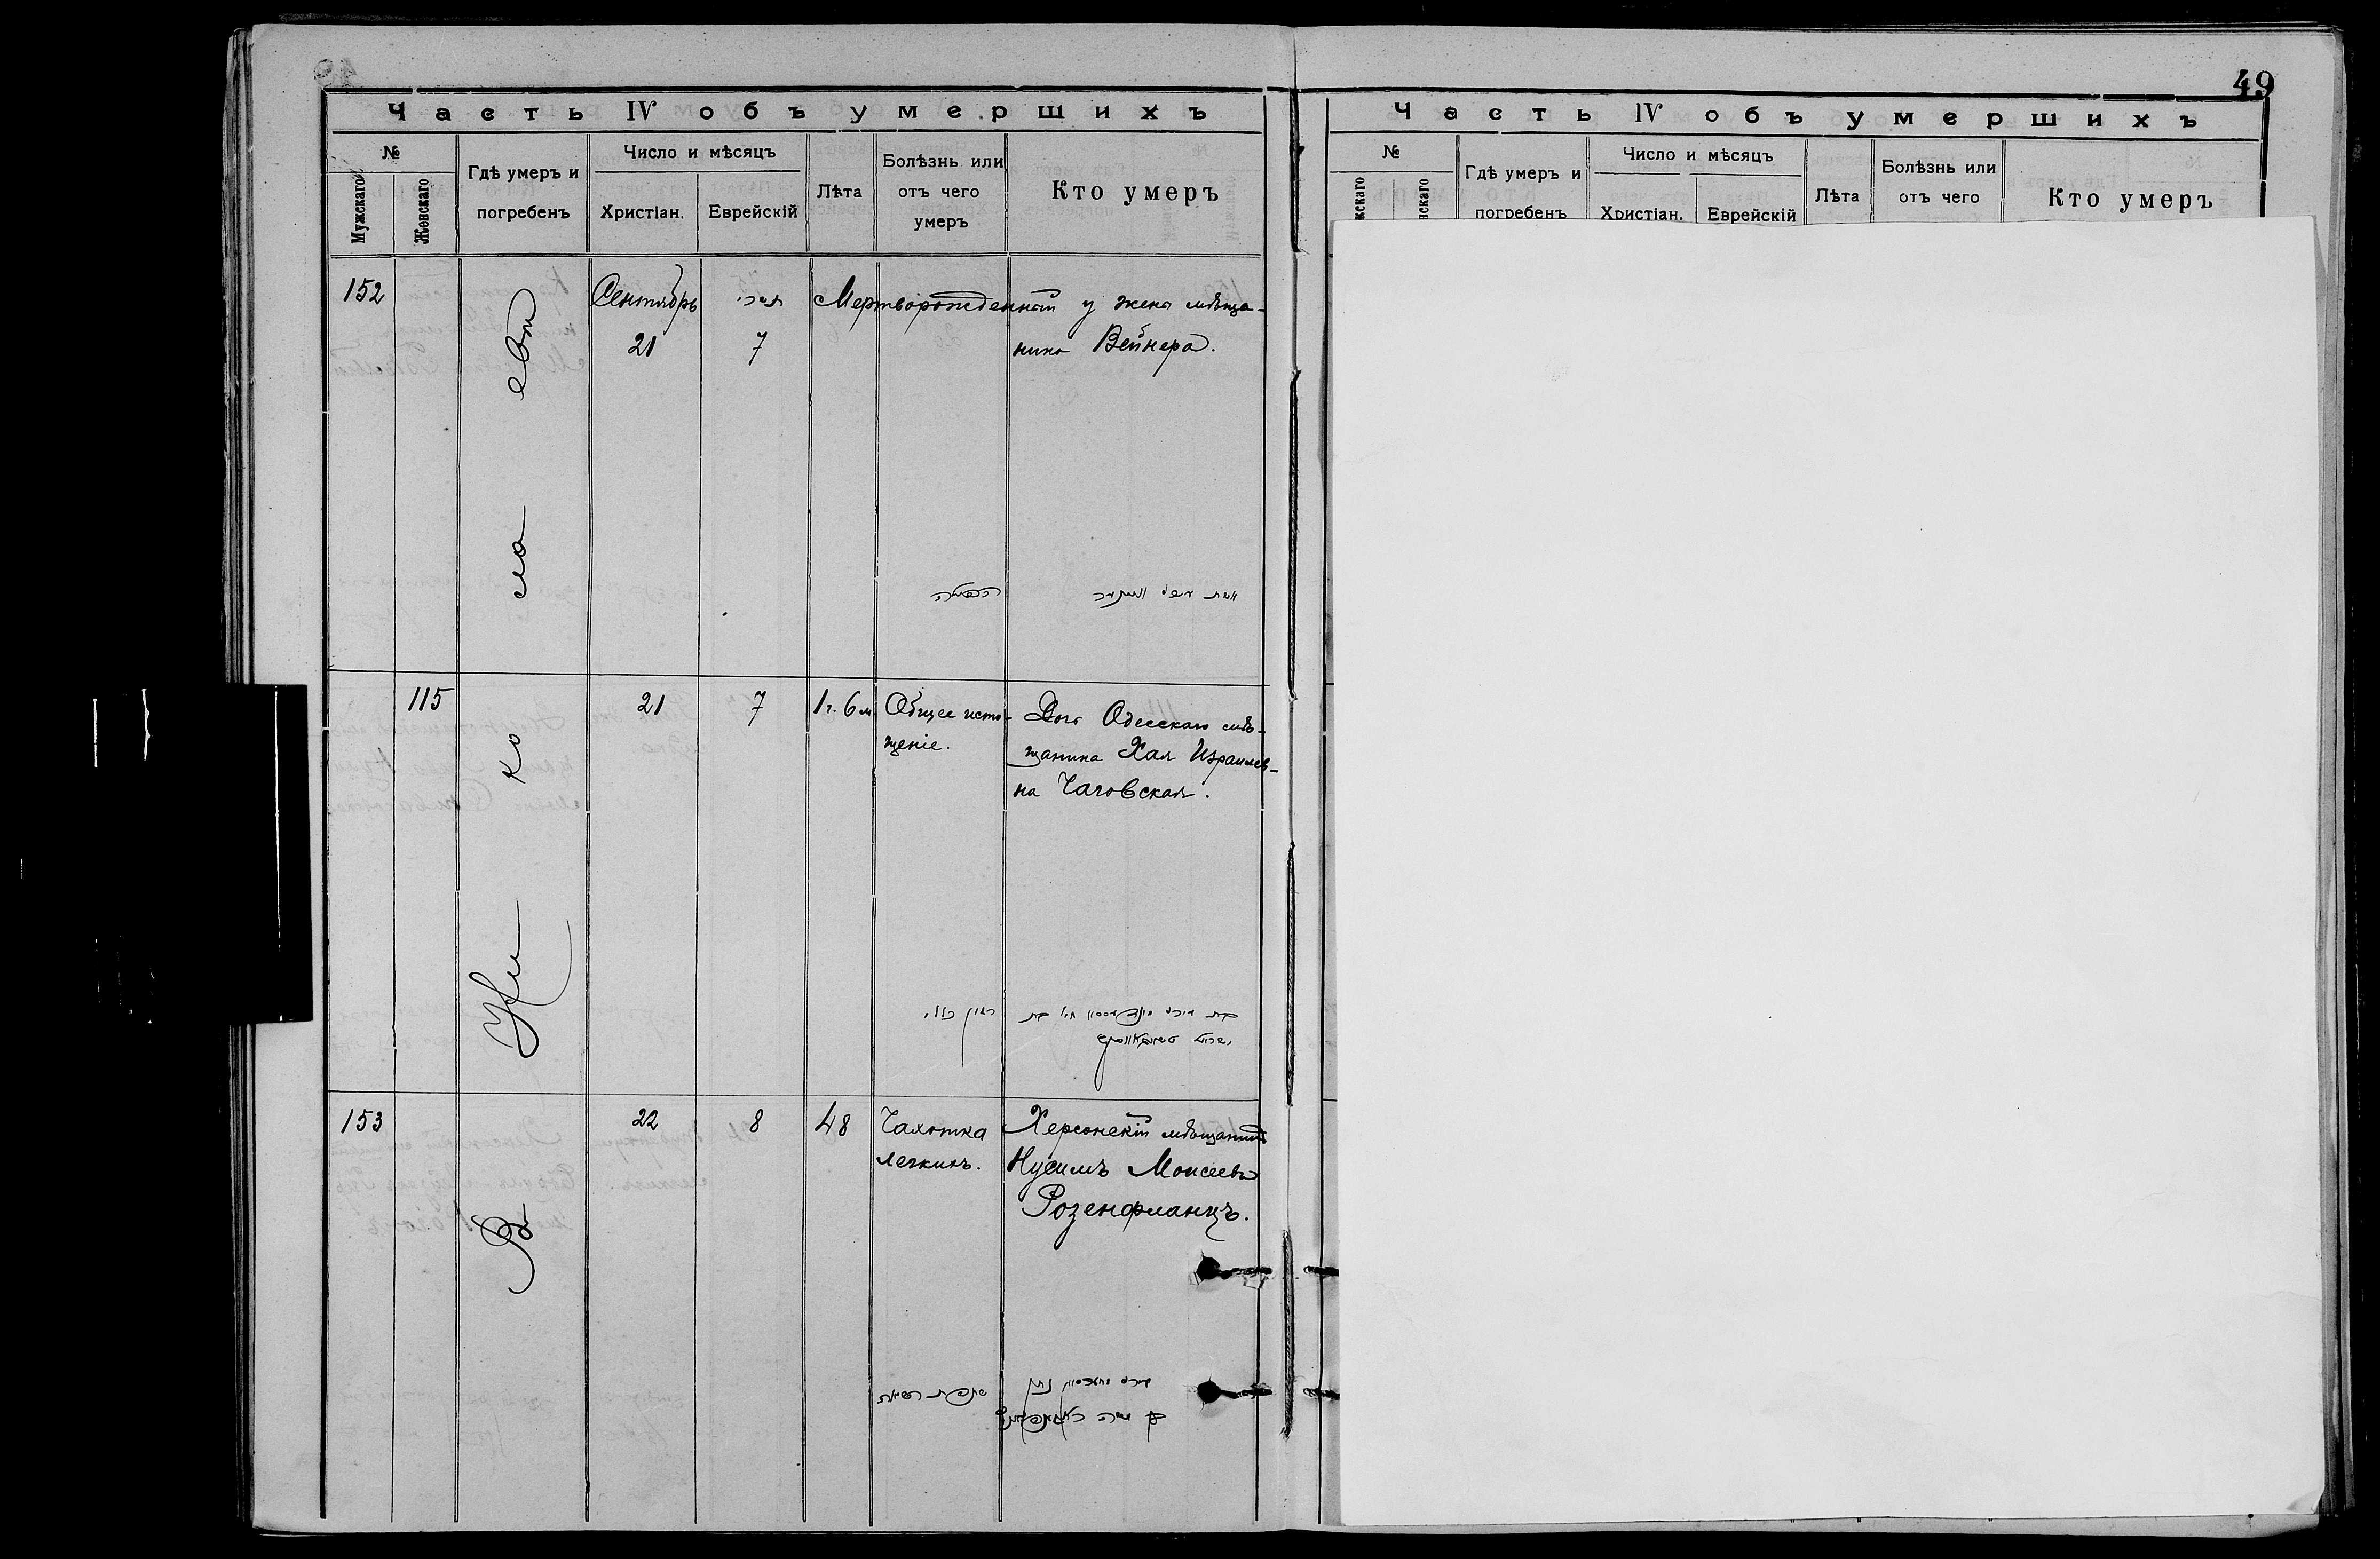 49
Часть IV объ умершихъ
№
Мужскаго
Женскаго
Гдѣ умеръ и
погребенъ
Число и мѣсяцъ
Христіан.
Еврейскій
Лѣта
Болѣзнь или
отъ чего
умеръ
Кто умеръ
152
Сентябрь
21
תשרי
7
Мертворожденный у жены мѣща-
нина Вейнера.
Въ Николаевѣ
115
21
7
1 г. 6 м
Общее исто-
щеніе.
Дочь Одесскаго мѣ-
щанина Хая Израилев-
на Чаговская.
153
22
8
48
Чахотка
легкихъ.
Херсонскій мѣщанинъ
Нусимъ Моисеевъ
Розенфланцъ.
Часть IV объ умершихъ
№
Гдѣ умеръ и
погребенъ
Число и мѣсяцъ
Христіан.
Еврейскій
Лѣта
Болѣзнь или
отъ чего
Кто умеръ